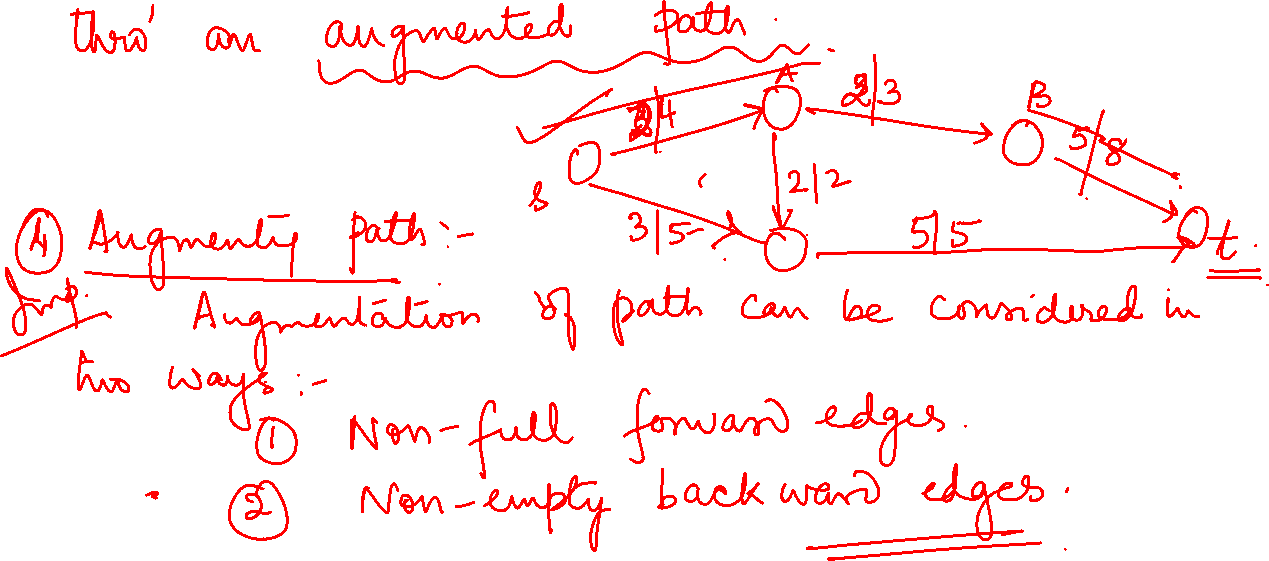 thro' an augmented path.
A
2|3
B
4
5/8
s
2|2
3|5
5|5
t.
④ Augmenting path:-
Imp.
Augmentation of path can be considered in
two ways:-
① Non-full forward edges.
② Non-empty backward edges.